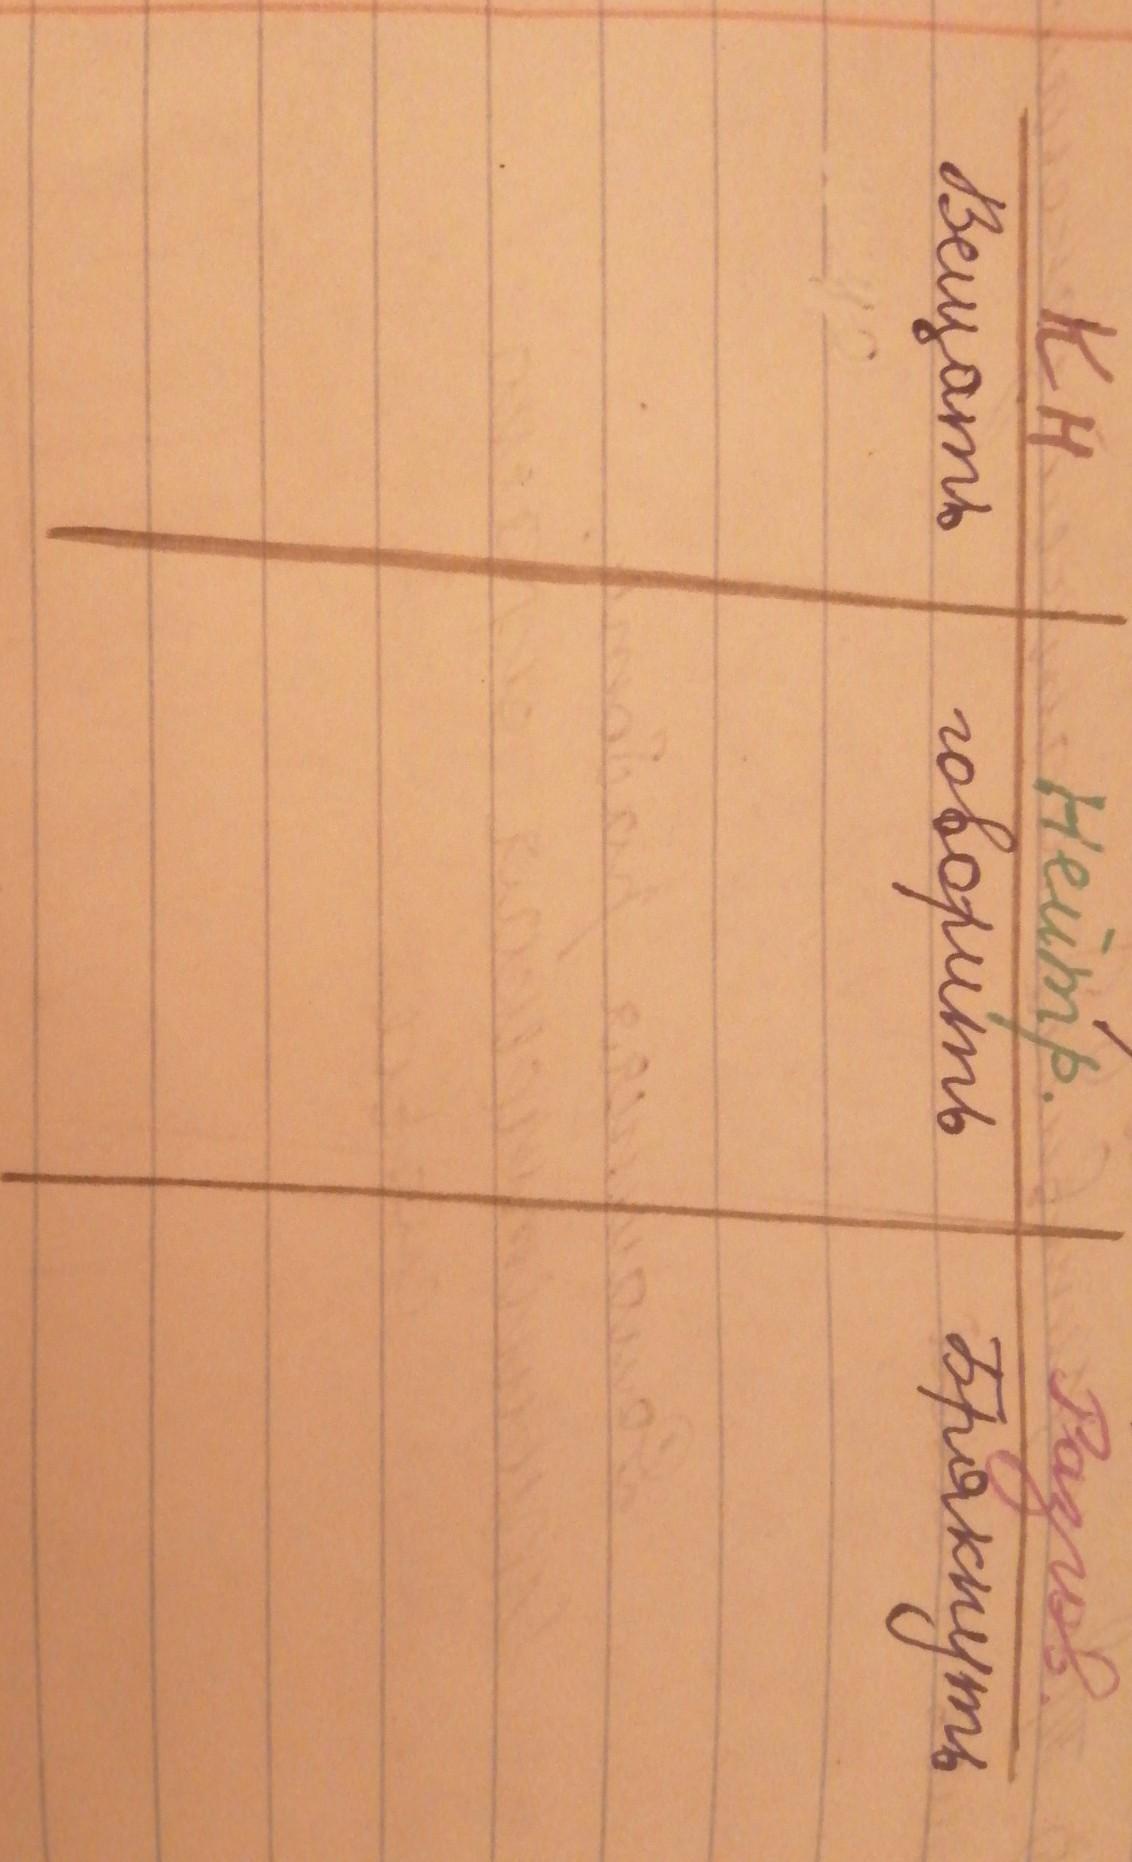 КН Нейтр. Разгов.
Вещать говорить Брякнуть